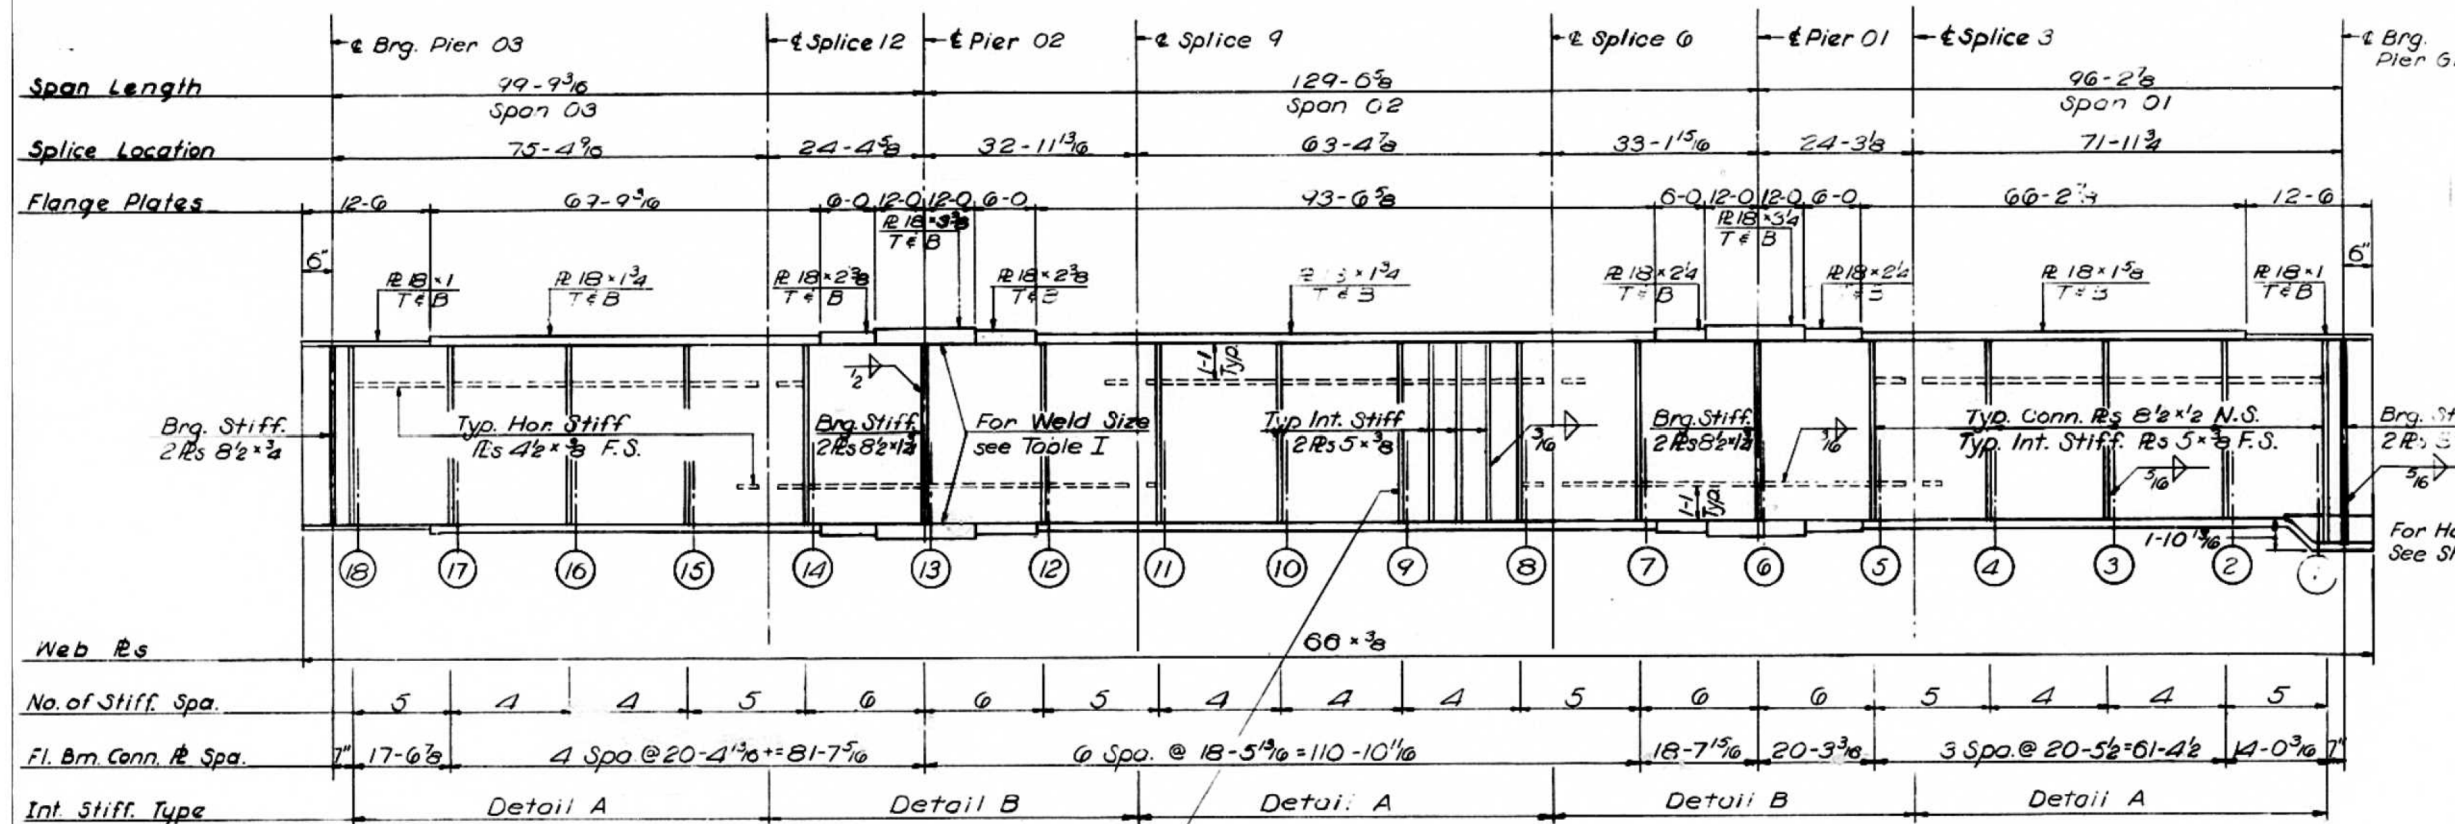 ℄ Brg. Pier 03
℄ Splice 12
℄ Pier 02
℄ Splice 9
℄ Splice 6
℄ Pier 01
℄ Splice 3
℄ Brg.
Pier
Span Length
99-9 3/16
129-6 5/8
96-2 7/8
Span 03
Span 02
Span 01
Splice Location
75-4 9/16
24-4 5/8
32-11 13/16
63-4 7/8
33-1 15/16
24-3 1/8
71-11 3/4
Flange Plates
12-6
6-0
12-0
12-0
6-0
93-6 5/8
6-0
12-0
12-0
6-0
12-6
T & B
℞ 18 × 3 1/4
T & B
6"
℞ 18 × 1
T & B
℞ 18 × 1 3/4
T & B
℞ 18 × 2 3/8
T & B
℞ 18 × 2 3/8
× 1 3/4
℞ 18 × 2 1/4
T & B
℞ 18 × 2 1/4
℞ 18 × 1 5/8
℞ 18 × 1
T & B
6"
1/2
1-1
Typ.
Brg. Stiff.
2 ℞s 8 1/2 × 3/4
Typ. Hor. Stiff
℞s 4 1/2 × 3/8 F.S.
Brg. Stiff.
2 ℞s 8 1/2 ×
For Weld Size
see Table I
Typ Int. Stiff
2 ℞s 5 × 3/8
3/16
Brg. Stiff.
2 ℞s 8 1/2 ×
Typ. Conn. ℞s 8 1/2 × 1/2 N.S.
Typ. Int. Stiff. ℞s 5 × 3/8 F.S.
5/16
Brg.
2 ℞s
5/16
1-1
Typ.
1-10 13/16
For
See
18
17
16
15
14
13
12
11
10
9
8
7
6
5
4
3
2
Web ℞s
66 × 3/8
No. of Stiff. Spa.
5 4 4 5 6 6 5 4 4 4 5 6 6 5 4 4 5
Fl. Bm. Conn. ℞ Spa.
7"
17-6 7/8
4 Spa @ 20-4 13/16+ = 81-7 5/16
6 Spa. @ 18-5 13/16 = 110-10 11/16
18-7 15/16
20-3 3/16
3 Spa. @ 20-5 1/2 = 61-4 1/2
14-0 3/16
7"
Int. Stiff. Type
Detail A
Detail B
Detail A
Detail B
Detail A